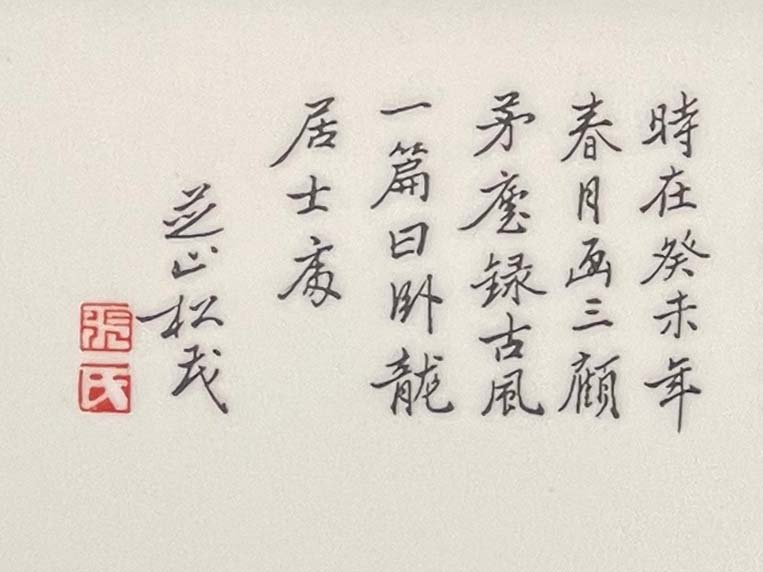 時在癸未年
春月画三顧
茅廬録古風
一篇曰卧龍
居士處
芝山松茂
張
氏